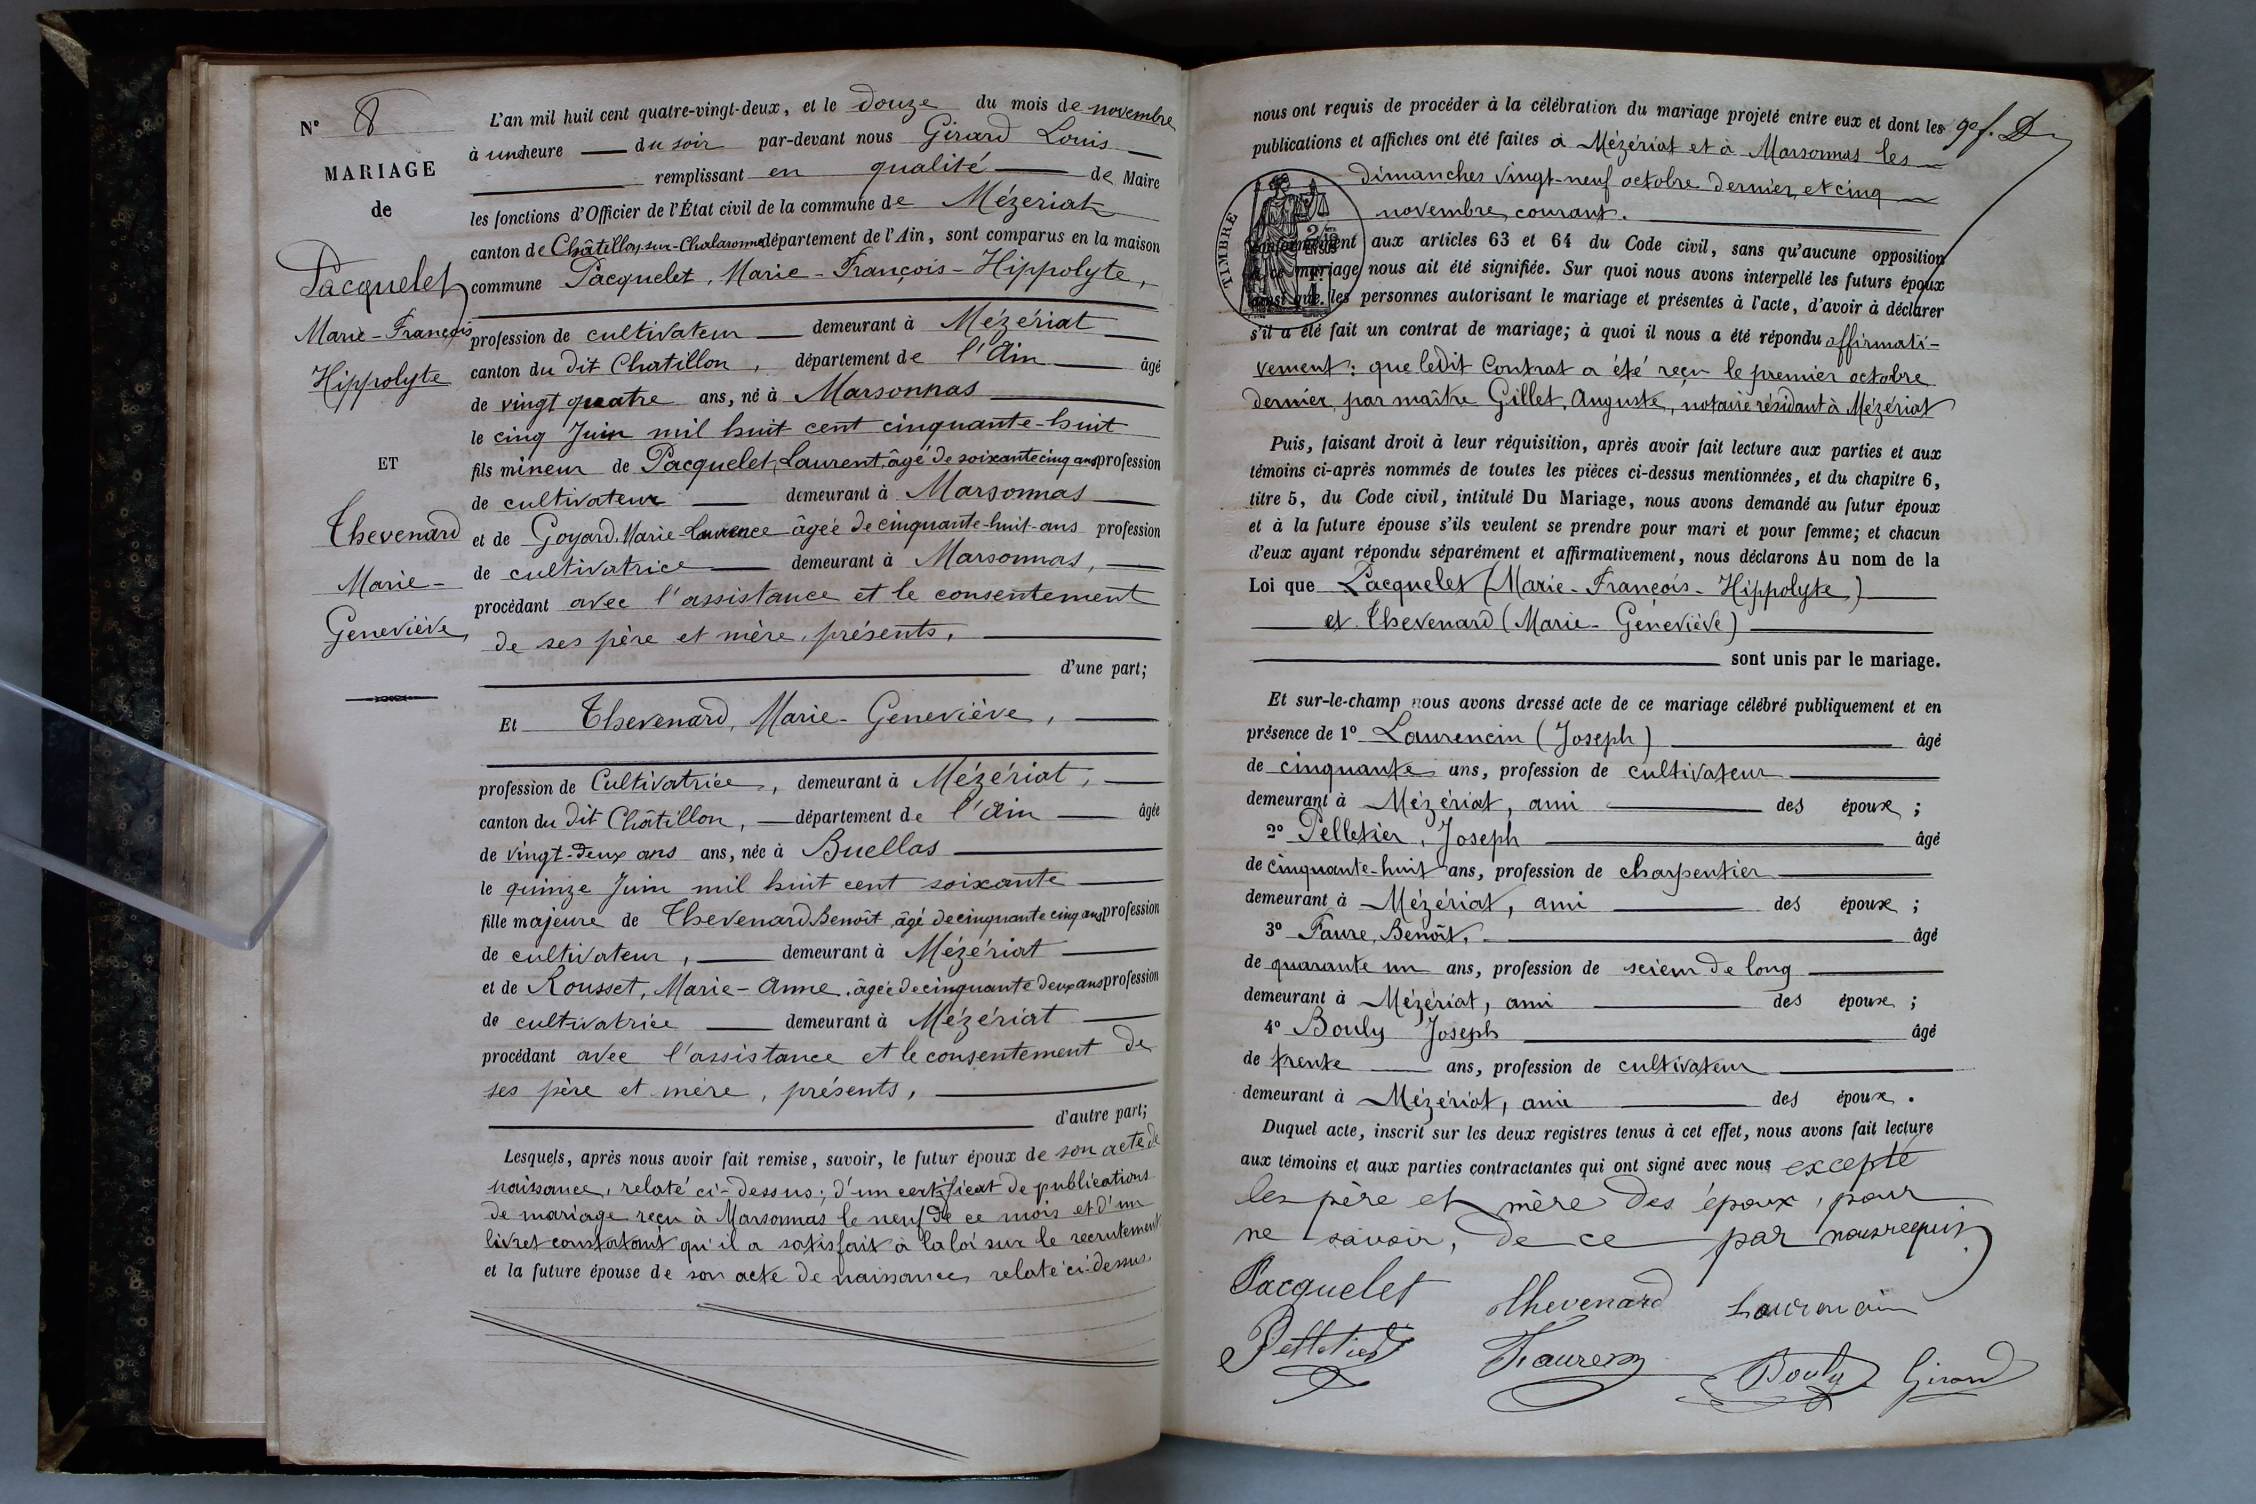 N° 8
MARIAGE
de
Pacquelet
Marie-François
Hippolyte
ET
Thevenard
Marie-
Geneviève,
L'an mil huit cent quatre-vingt-deux, et le douze du mois de novembre
à une heure du soir par-devant nous Girard Louis
remplissant en qualité de Maire
les fonctions d'Officier de l'État civil de la commune de Mézeriat
canton de Châtillon-sur-Chalaronne département de l'Ain, sont comparus en la maison
commune Pacquelet, Marie-François-Hippolyte,
profession de cultivateur demeurant à Mézériat
canton du dit Chatillon, département de l'Ain âgé
de vingt quatre ans, né à Marsonnas
le cinq Juin mil huit cent cinquante-huit
fils mineur de Pacquelet, Laurent, âgé de soixante cinq ans profession
de cultivateur demeurant à Marsonnas
et de Goyard, Marie-Laurence âgée de cinquante-huit-ans profession
de cultivatrice demeurant à Marsonnas,
procédant avec l'assistance et le consentement
de ses père et mère, présents,
d'une part;
Et Thevenard, Marie-Geneviève,
profession de Cultivatrice, demeurant à Mézériat,
canton du dit Châtillon, département de l'Ain âgée
de vingt-deux ans ans, née à Buellas
le quinze Juin mil huit cent soixante
fille majeure de Thevenard Benoît, âgé de cinquante cinq ans profession
de cultivateur, demeurant à Mézériat
et de Rousset, Marie-Anne, âgée de cinquante deux ans profession
de cultivatrice demeurant à Mézériat
procédant avec l'assistance et le consentement de
ses père et mère, présents,
d'autre part;
Lesquels, après nous avoir fait remise, savoir, le futur époux de son acte de
naissance, relaté ci-dessus; d'un certificat de publications
de mariage reçu à Marsonnas le neuf de ce mois et d'un
livret constatant qu'il a satisfait à la loi sur le recrutement
et la future épouse de son acte de naissance, relaté ci-dessus.
nous ont requis de procéder à la célébration du mariage projeté entre eux et dont les
publications et affiches ont été faites à Mézériat et à Marsonnas les
dimanches vingt-neuf octobre dernier, et cinq
novembre courant.
TIMBRE
conformément aux articles 63 et 64 du Code civil, sans qu'aucune opposition
à ce mariage nous ait été signifiée. Sur quoi nous avons interpellé les futurs époux
ainsi que les personnes autorisant le mariage et présentes à l'acte, d'avoir à déclarer
s'il a été fait un contrat de mariage; à quoi il nous a été répondu affirmati-
vement: que ledit Contrat a été reçu le premier octobre
dernier, par maître Gillet, Auguste, notaire résidant à Mézériat
Puis, faisant droit à leur réquisition, après avoir fait lecture aux parties et aux
témoins ci-après nommés de toutes les pièces ci-dessus mentionnées, et du chapitre 6,
titre 5, du Code civil, intitulé Du Mariage, nous avons demandé au futur époux
et à la future épouse s'ils veulent se prendre pour mari et pour femme; et chacun
d'eux ayant répondu séparément et affirmativement, nous déclarons Au nom de la
Loi que Pacquelet (Marie-François-Hippolyte)
et Thevenard (Marie-Geneviève)
sont unis par le mariage.
Et sur-le-champ nous avons dressé acte de ce mariage célébré publiquement et en
présence de 1° Laurencin (Joseph) âgé
de cinquante ans, profession de cultivateur
demeurant à Mézériat, ami des époux;
2° Pelletier, Joseph âgé
de cinquante-huit ans, profession de charpentier
demeurant à Mézériat, ami des époux;
3° Faure, Benoît, âgé
de quarante un ans, profession de scieur de long
demeurant à Mézériat, ami des époux;
4° Bouly Joseph âgé
de trente ans, profession de cultivateur
demeurant à Mézériat, ami des époux.
Duquel acte, inscrit sur les deux registres tenus à cet effet, nous avons fait lecture
aux témoins et aux parties contractantes qui ont signé avec nous excepté
les père et mère des époux, pour
ne savoir, de ce par nous requis
Pacquelet Thevenard Laurencin
Pelletier Faure Bouly Girard